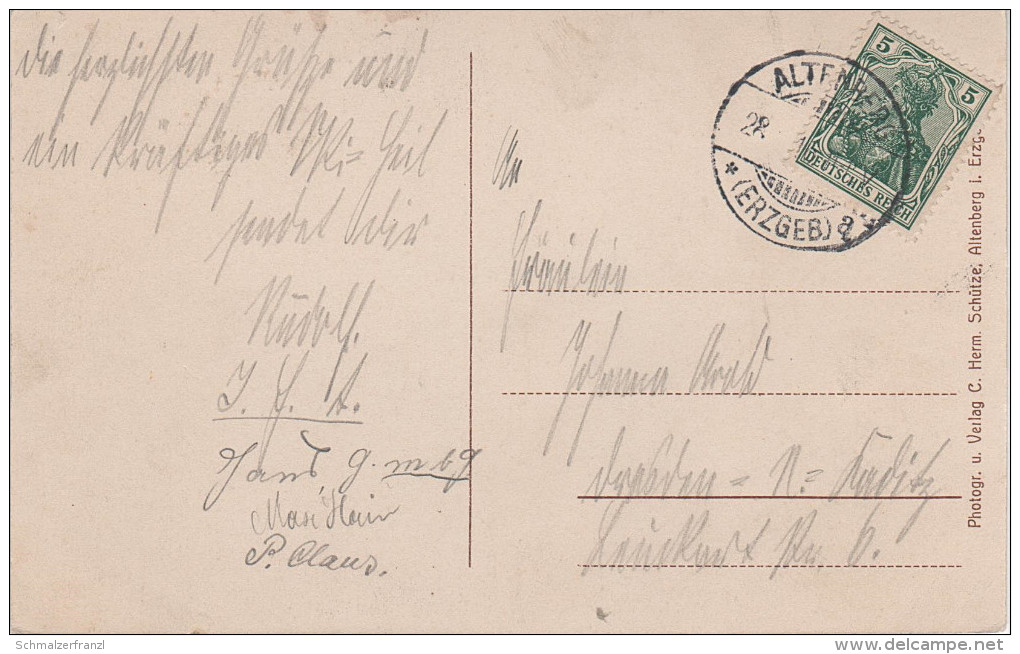 die herzlichsten Grüße und
ein kräftiges Ski=Heil
sendet Dir
Rudolf.
Hans, G. mbg
P. Claus.
An
Fräulein
Johanna
Dresden = N. = Kaditz
6.
ALTENBERG
28.
* (ERZGEB) a *
5 5
DEUTSCHES REICH
Photogr. u. Verlag C. Herm. Schütze, Altenberg i. Erzg
Schmalzerfranzl
delcampe.net